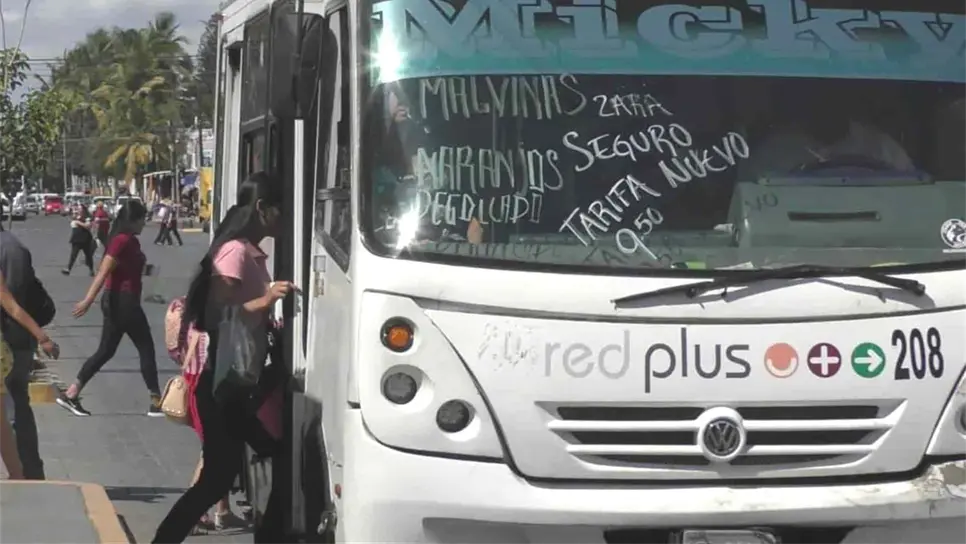 Micky
MALVINAS ZARA
NARANJOS
DEGOLLADO
SEGURO
TARIFA NUEVO
9.50
red plus 208